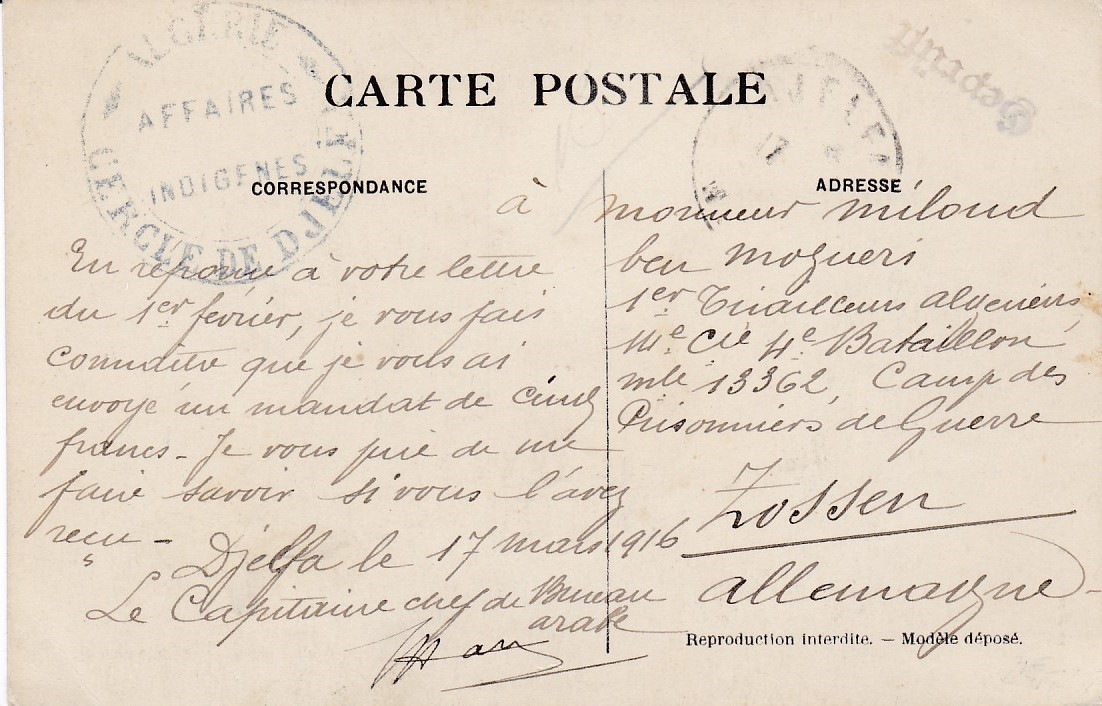 ALGÉRIE
AFFAIRES
INDIGÈNES
CERCLE DE DJELFA
CARTE POSTALE
DJELFA
17
Geprüft
CORRESPONDANCE
En réponse à votre lettre
du 1er février, je vous fais
connaître que je vous ai
envoyé un mandat de cinq
francs - Je vous prie de me
faire savoir si vous l'avez
reçu -
Djelfa le 17 mars 1916
Le Capitaine chef de Bureau
arabe
ADRESSE
à Monsieur Miloud
ben Mogueri
1er Tirailleurs algériens
14e Cie 4e Bataillon
mle 13362, Camp des
Prisonniers de Guerre
Zossen
Allemagne -
Reproduction interdite. — Modèle déposé.